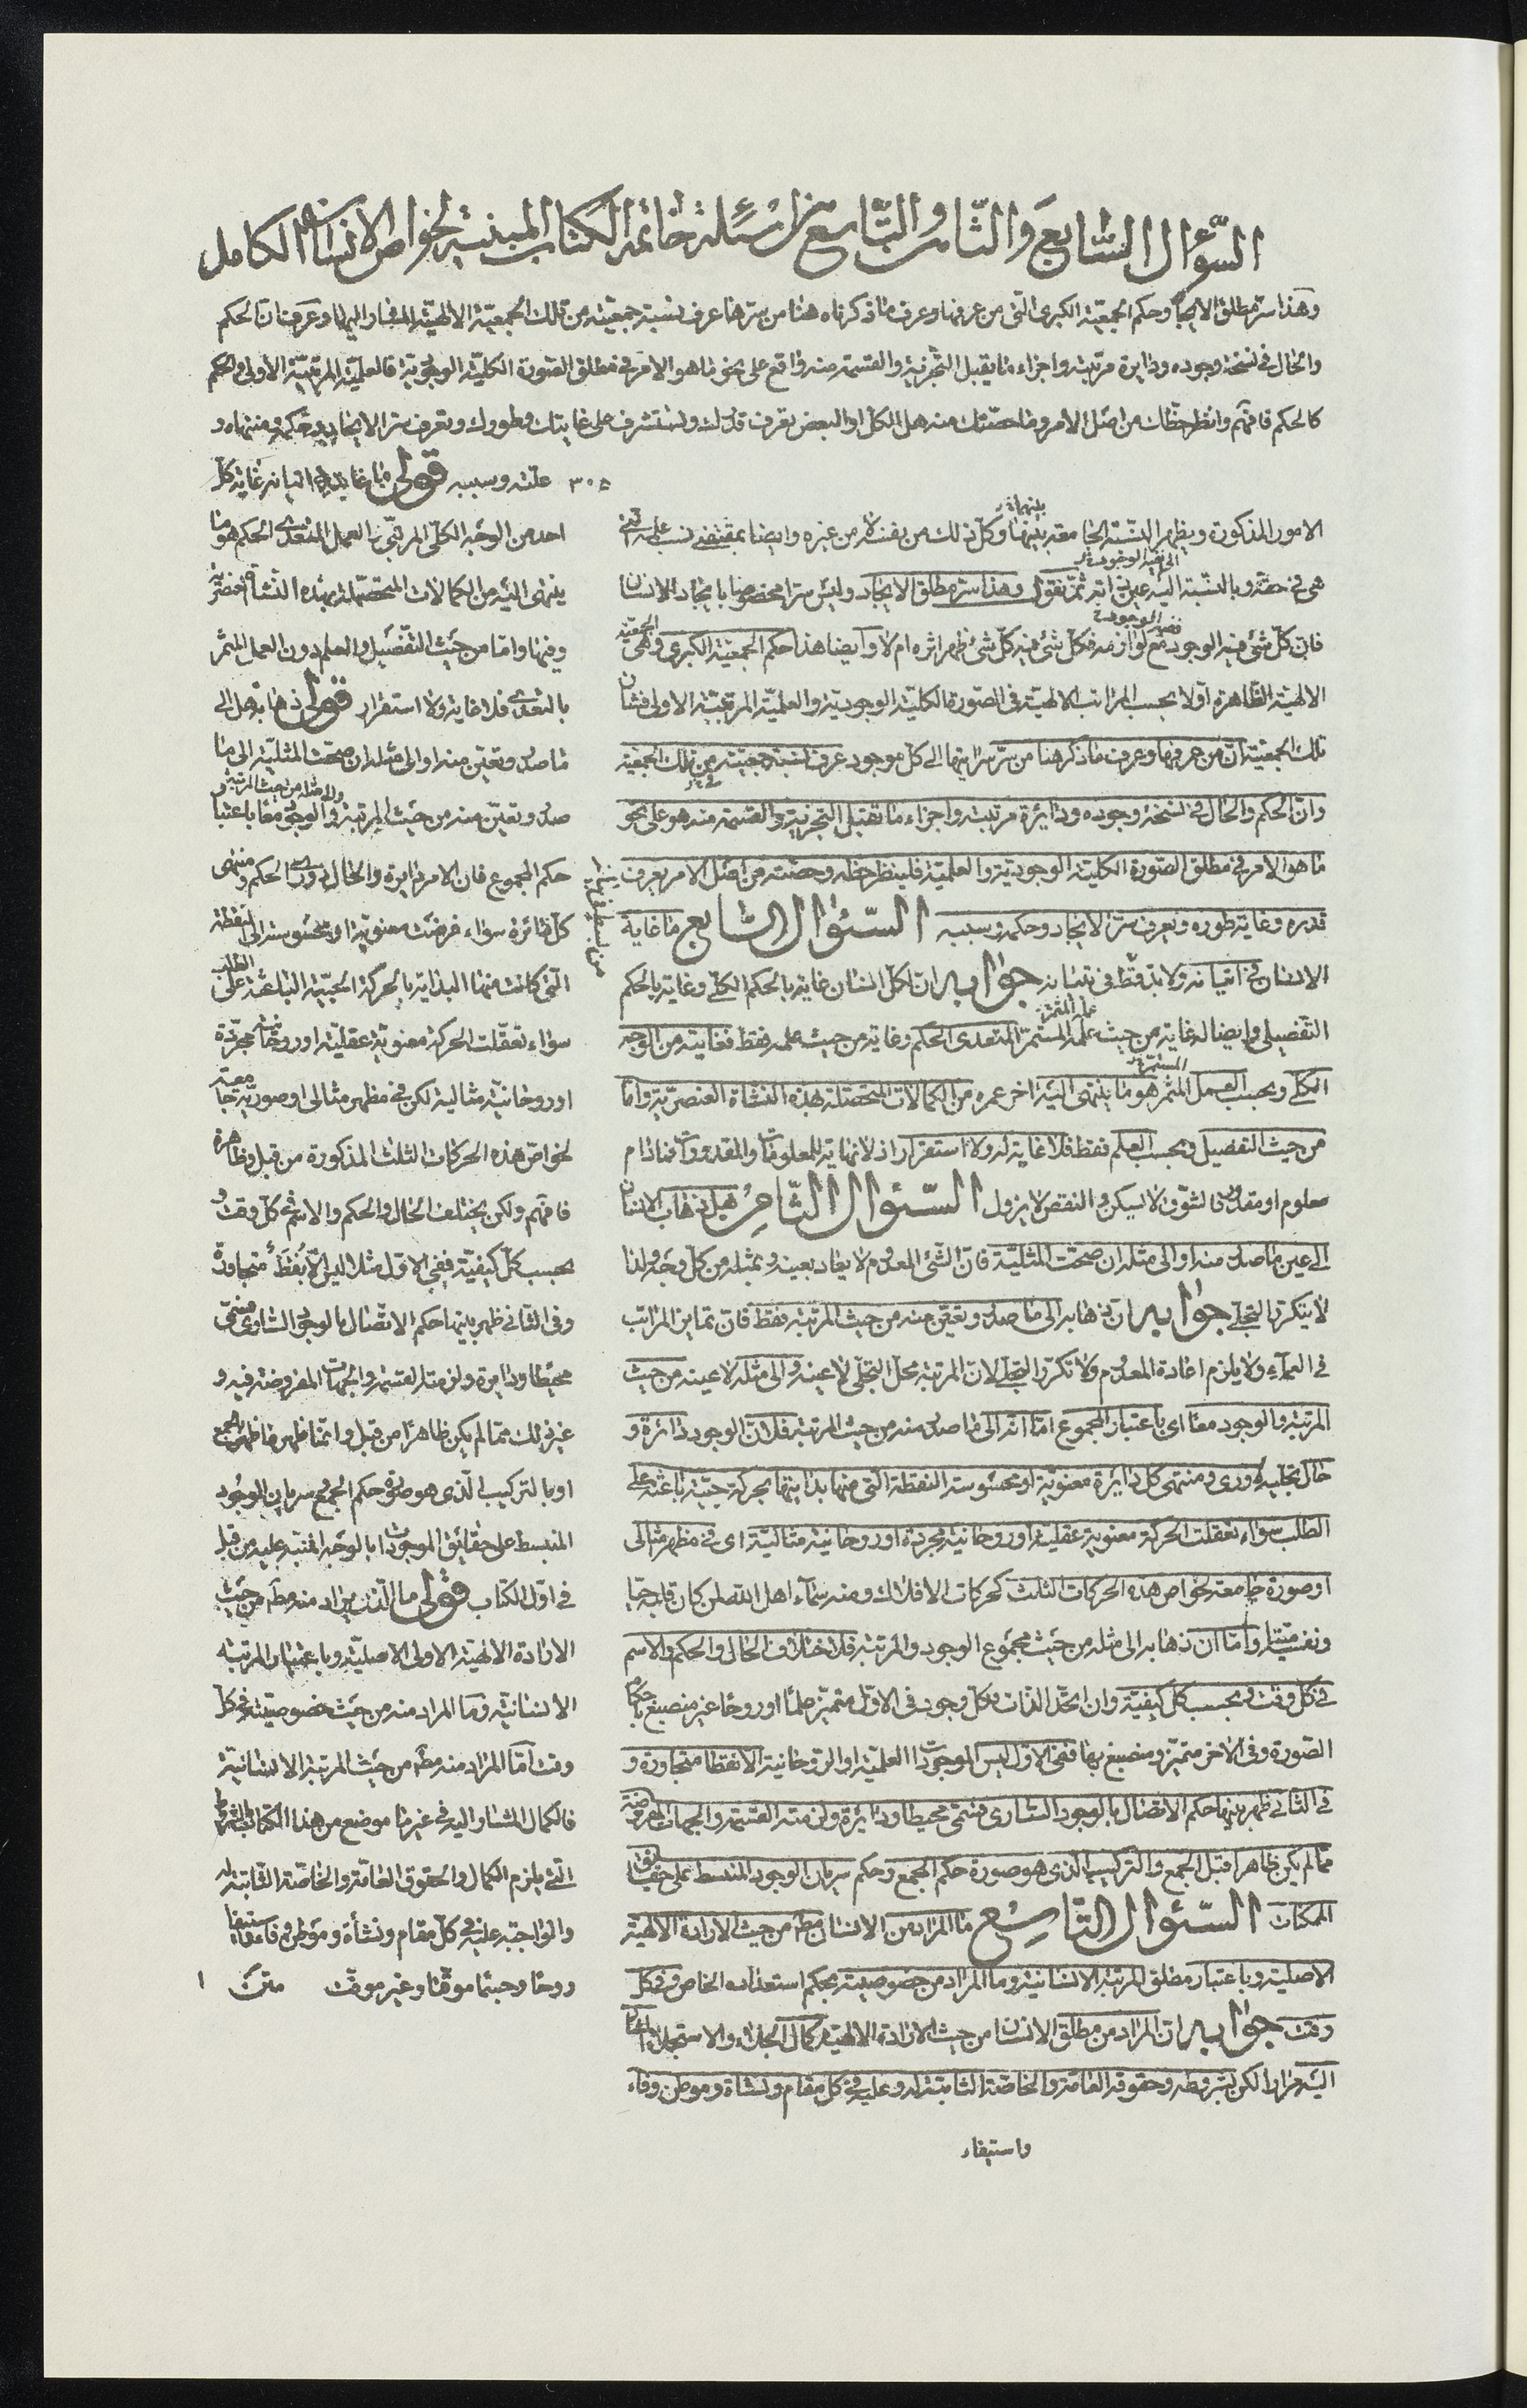 السؤال السابع والثامن والتاسع من اسئلة خاتمة الكتاب المبنية لخواص الانسان الكامل
وهذا سر مطلق الايجاد وحكم الجمعية الكبرى التى من عرفها وعرف ما ذكرناه هنا من سرها عرف نسبة جمعيته من تلك الجمعية الالهية المشار اليها وعرف ان الحكم
والحال فى نسخة وجوده ودايرة مرتبته واجزاء ما يقبل التجزية والقسمة منه واقع على نحو ما هو الامر فى مطلق الصورة الكلية الوجودية والعلمية المرتبية الاولى والحكم
كالحكم فافهم وانظر حظك من اصل الامر وما حصتك منه هل الكل او البعض تعرف قدرك وتستشرف على غايتك وطورك وتعرف سر الايجاد وحكمه ومنتهاه و
علته وسببه قولى ما غايته فى اتيانه غاية كل
احد من الوجه الكلى المرتبى والعمل المتعدى الحكم هو ما
ينتهى اليه من الكمالات المتحصلة بهذه النشأة العنصرية
وفيها واما من حيث التفصيل والعلم دون العمل المثمر
بالتعدى فلا غاية ولا استقرار قولى ذهابه هل الى
ما صدر وتعين منه او الى مثله ان صحت المثلية الى ما
صدر وتعين منه من حيث المرتبة والوجود معا باعتبار
حكم المجموع فان الامر دايرة والحال دورى الحكم ومنتهى
كل دائرة سواء فرضت معنوية او محسوسة الى النقطة
التى كانت منها البداية بالحركة الحبية الباعثة على الطلب
سواء تعقلت الحركة معنوية عقلية او روحانية مجردة
او روحانية مثالية لكن فى مظهر مثالى او صورية جامعة
لخواص هذه الحركات الثلث المذكورة من قبل وظاهرة
فافهم ولكن يختلف الحال والحكم والاسم فى كل وقت و
بحسب كل كيفية ففى الاول مثلا ليس الا نقط متجاورة
وفى الثانى ظهر بينها حكم الاتصال بالوجود السارى فسمى
محيطا ودايرة ولزمته القسمة والجهات المفروضة فيه و
غير ذلك مما لم يكن ظاهرا من قبل وانما ظهر ما ظهر بالجمع
او بالتركيب الذى هو صورة حكم الجمع وسريان الوجود
المنبسط على حقائق الموجودات بالوجه المنبه عليه من قبل
فى اول الكتاب قولى ما الذى يراد منه مطلقا من حيث
الارادة الالهية الاولى الاصلية وباعتبار المرتبة
الانسانية وما المراد منه من حيث خصوصيته فى كل
وقت اما المراد منه مطلقا من حيث المرتبة الانسانية
فالكمال المشار اليه فى غير ما موضع من هذا الكتاب بالشروط
التى يلزم الكمال والحقوق العامة والخاصة الثابتة له
والواجبة عليه فى كل مقام ونشأة وموطن وفاء واستيفاء
روحا وجسما موقتا وغير موقت متن
الامور المذكورة ويظهر النسبة الجامعة بينهما وكل ذلك من نفسه لا من غيره وايضا بمقتضى نسب علمه التى
هى فى حقه وبالنسبة اليه عين ذاته ثم نقول وهذا سر مطلق الايجاد وليس سرا مخصوصا بايجاد الانسان
فان كل شئ فيه الوجود مع لوازمه فكل شئ فيه كل شئ ظهر اثره ام لا وايضا هذا حكم الجمعية الكبرى وهى الجمعية
الالهية الظاهرة اولا بحسب المراتب الالهية فى الصورة الكلية الوجودية والعلمية المرتبية الاولى فشأن
تلك الجمعية ان من عرفها وعرف ما ذكر هنا من سر سرايتها الى كل موجود عرف نسبة جمعيته من تلك الجمعية
وان الحكم والحال فى نسخة وجوده ودايرة مرتبته واجزاء ما تقبل التجزية والقسمة منه هو على نحو
ما هو الامر فى مطلق الصورة الكلية الوجودية والعلمية فلينظر حظه وحصته من اصل الامر يعرف
قدره وغاية طوره ويعرف سر الايجاد وحكمه وسببه السؤال السابع ما غاية
الانسان فى اتيانه ولا بد فى اتيانه جوابه ان لكل انسان غاية بالحكم الكلى وغاية بالحكم
التفصيلى وايضا له غاية من حيث علمه المستمر المتعدى الحكم وغاية من حيث علمه فقط فغايته من الوجه
الكلى وبحسب العمل المثمر هو ما ينتهى اليه اخر عمره من الكمالات المتحصلة بهذه النشأة العنصرية واما
من حيث التفصيل وبحسب العلم فقط فلا غاية له ولا استقرار اذ لا نهاية للمعلومات والمقدورات فما دام
معلوم او مقدور فالتشوق لا يسكن والنقص لا يزول السؤال الثامن هل ذهاب الانسان
الى عين ما صدر منه او الى مثله ان صحت المثلية فان الشئ المعدوم لا يعاد بعينه وبمثله من كل وجه ولذا
لا يتكرر التجلى جوابه ان ذهابه الى ما صدر وتعين منه من حيث المرتبة فقط فان تمايز المراتب
فى العماء ولا يلزم اعادة المعدوم ولا تكرر التجلى لان المرتبة محل التجلى لا عينه والى مثله لا عينه من حيث
المرتبة والوجود معا اى باعتبار المجموع اما انه الى ما صدر منه من حيث المرتبة فلان الوجود دائرة و
حال تجليه دورى ومنتهى كل دايرة معنوية او محسوسة النقطة التى منها بدايتها بحركة حبية باعثة على
الطلب سواء تعقلت الحركة معنوية عقلية او روحانية مجردة او روحانية مثالية اى فى مظهر مثالى
او صورة جامعة لخواص هذه الحركات الثلث كحركات الافلاك ومنه سماء اهل الله لمن كان قلبه حيا
ونفسه ميتا واما ان ذهابه الى مثله من حيث مجموع الوجود والمرتبة فلاختلاف الحال والحكم والاسم
فى كل وقت وبحسب كل كيفية وان اتحد الذات فكل وجود فى الاول متميز علما او روحا غير منصبغ باحكام
الصورة وفى الاخر متميز ومنصبغ بها ففى الاول ليس الموجودات العلمية او الروحانية الا نقطا متجاورة و
فى الثانى ظهر بينها حكم الاتصال بالوجود السارى فسمى محيطا ودائرة ولزمته القسمة والجهات المفروضة
مما لم يكن ظاهرا قبل الجمع والتركيب الذى هو صورة حكم الجمع وحكم سريان الوجود المنبسط على حقائق
الممكنات السؤال التاسع ما المراد من الانسان مطلقا من حيث الارادة الالهية
الاصلية وباعتبار مطلق المرتبة الانسانية وما المراد من خصوصيته بحكم استعداده الخاص وفى كل
وقت جوابه ان المراد من مطلق الانسان من حيث الارادة الالهية كمال الجلاء والاستجلاء المشار
اليه مرارا لكن بشروطه وحقوقه العامة والخاصة الثابتة له وعليه فى كل مقام ونشأة وموطن وفاء
واستيفاء